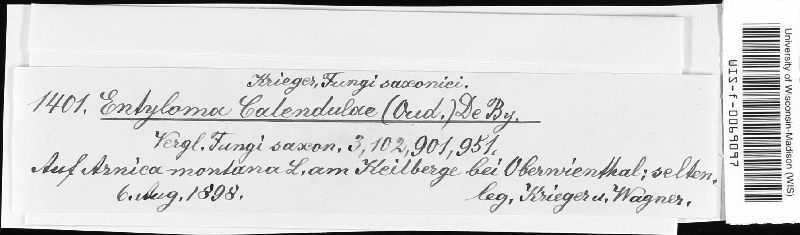 Krieger, Fungi saxonici.
1401. Entyloma Calendulae (Oud.) De By.
Vergl. Fungi saxon. 3, 102, 901, 951.
Auf Arnica montana L. am Keilberge bei Oberwienthal; selten.
6. Aug. 1898. leg. Krieger u. Wagner.
University of Wisconsin-Madison (WIS)
WIS-f-0069097